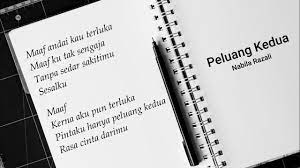 Maaf andai kau terluka
Maaf ku tak sengaja
Tanpa sedar sakitimu
Sesalku
Maaf
Kerna aku pun terluka
Pintaku hanya peluang kedua
Rasa cinta darimu
Peluang Kedua
Nabila Razali